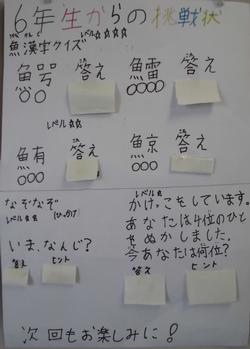 6年生からの挑戦状
レベル☆☆☆
魚漢字クイズ
鰐 答え
○○
鱩 答え
○○○○
鮪 答え
○○○
鯨 答え
○○○
なぞなぞ
レベル☆☆ (ひっかけ)
いま、なんじ?
答え ヒント
レベル☆
かけっこをしています。
あなたは4位のひと
をぬかしました。
今あなたは何位?
答え ヒント
次回もお楽しみに!